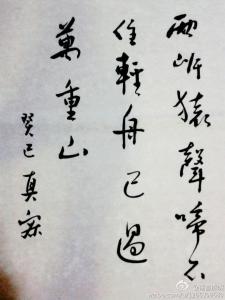 两岸猿聲啼不
住輕舟已過
萬重山
癸巳真寂